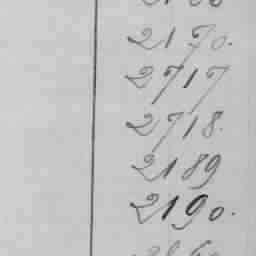 2170.
2717
2718.
2189
2190.